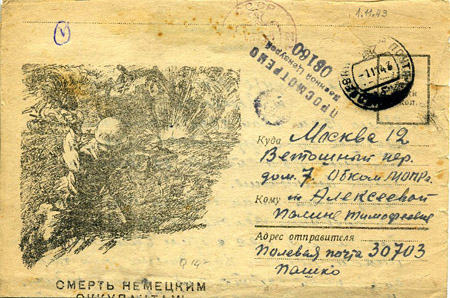 1.11.43
V
СССР
ПРОСМОТРЕНО
Военной Цензурой
06160
Куда Москва 12
Ветошный пер.
дом. 7. Обком МОПРа
Кому т Алексеевой
Полине Тимофеевне
Адрес отправителя
Полевая почта 30703
Пашко
СМЕРТЬ НЕМЕЦКИМ
ОККУПАНТАМ